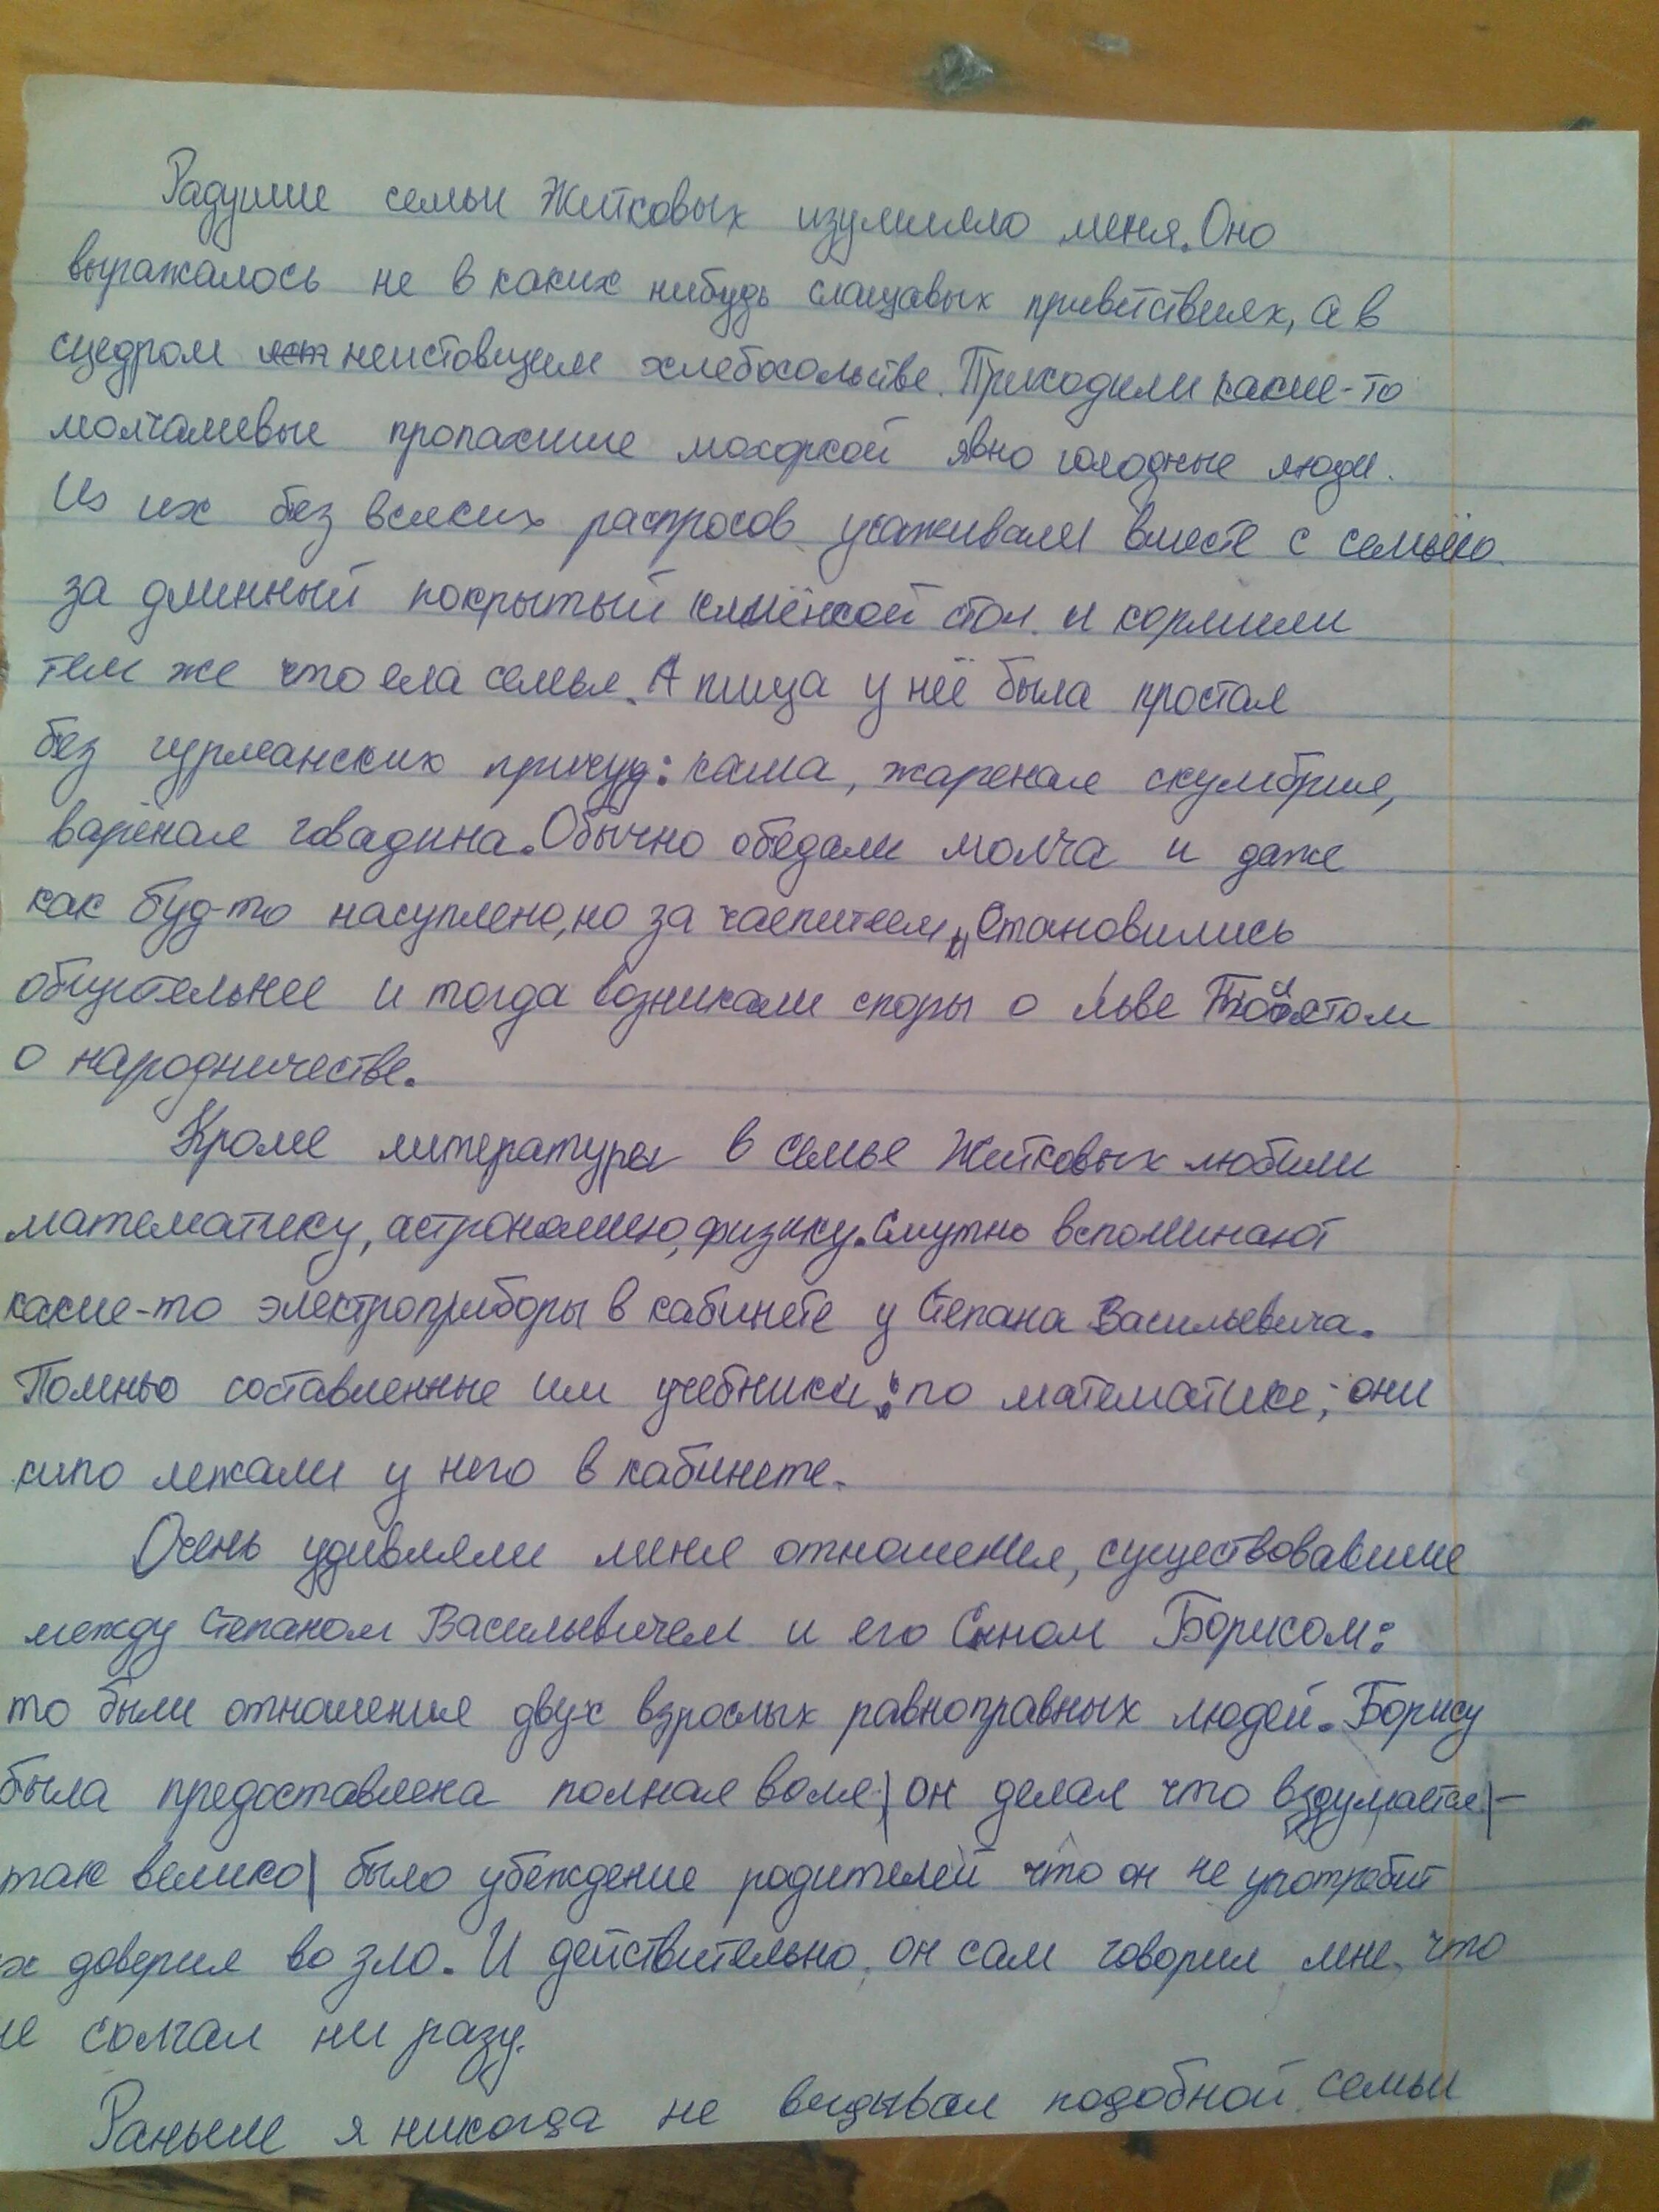 Радушие семьи Житковых изумляло меня. Оно
выражалось не в каких нибудь слащавых приветствиях, а в
сцедром неистовщем хлебосольстве. Приходили какие-то
молчаливые пропахшие махоркой явно голодные люди.
Из их без всяких распросов усаживали вместе с семьёю
за длинный покрытый клиёнкой стол и кормили
тем же что ела семья. А пища у неё была простая
без гурманских причуд: каша, жареная скумбрия,
варёная говадина. Обычно обедали молча и даже
как буд-то насуплено, но за чаепитием, становились
общительнее и тогда возникали споры о Льве
о народничестве.
Кроме литературы в семье Житковых любили
математику, астрономию, физику. Смутно вспоминают
какие-то электроприборы в кабинете у Степана Васильевича.
Помнью составленные им учебники: по математике; они
кипо лежали у него в кабинете.
Очень удивляли меня отношения, существовавшие
между Степаном Васильевичем и его Сыном Борисом:
то были отношения двух взрослых равноправных людей. Борису
была предоставлена полная воля| он делал что вздумается|-
так велико| было убеждение родителей что он не употребит
х доверия во зло. И действительно, он сам говорил мне, что
не солгал ни разу.
Раньше я никогда не видывал подобной семьи